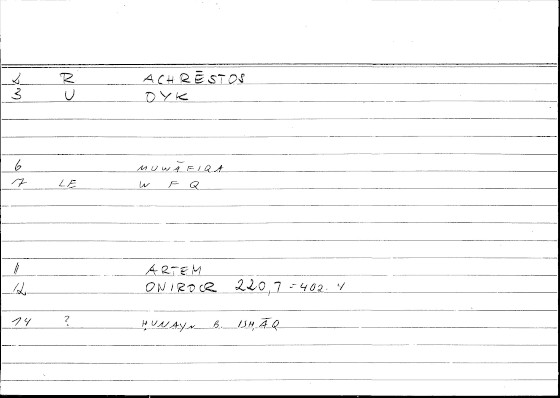 2 R ACHRĒSTOS
3 U DYK
6 MUWĀFIQA
7 LE W F Q
11 ARTEM
12 ONIROCR 220,7 = 402.4
14 ? ḤUNAYN B. ISḤĀQ